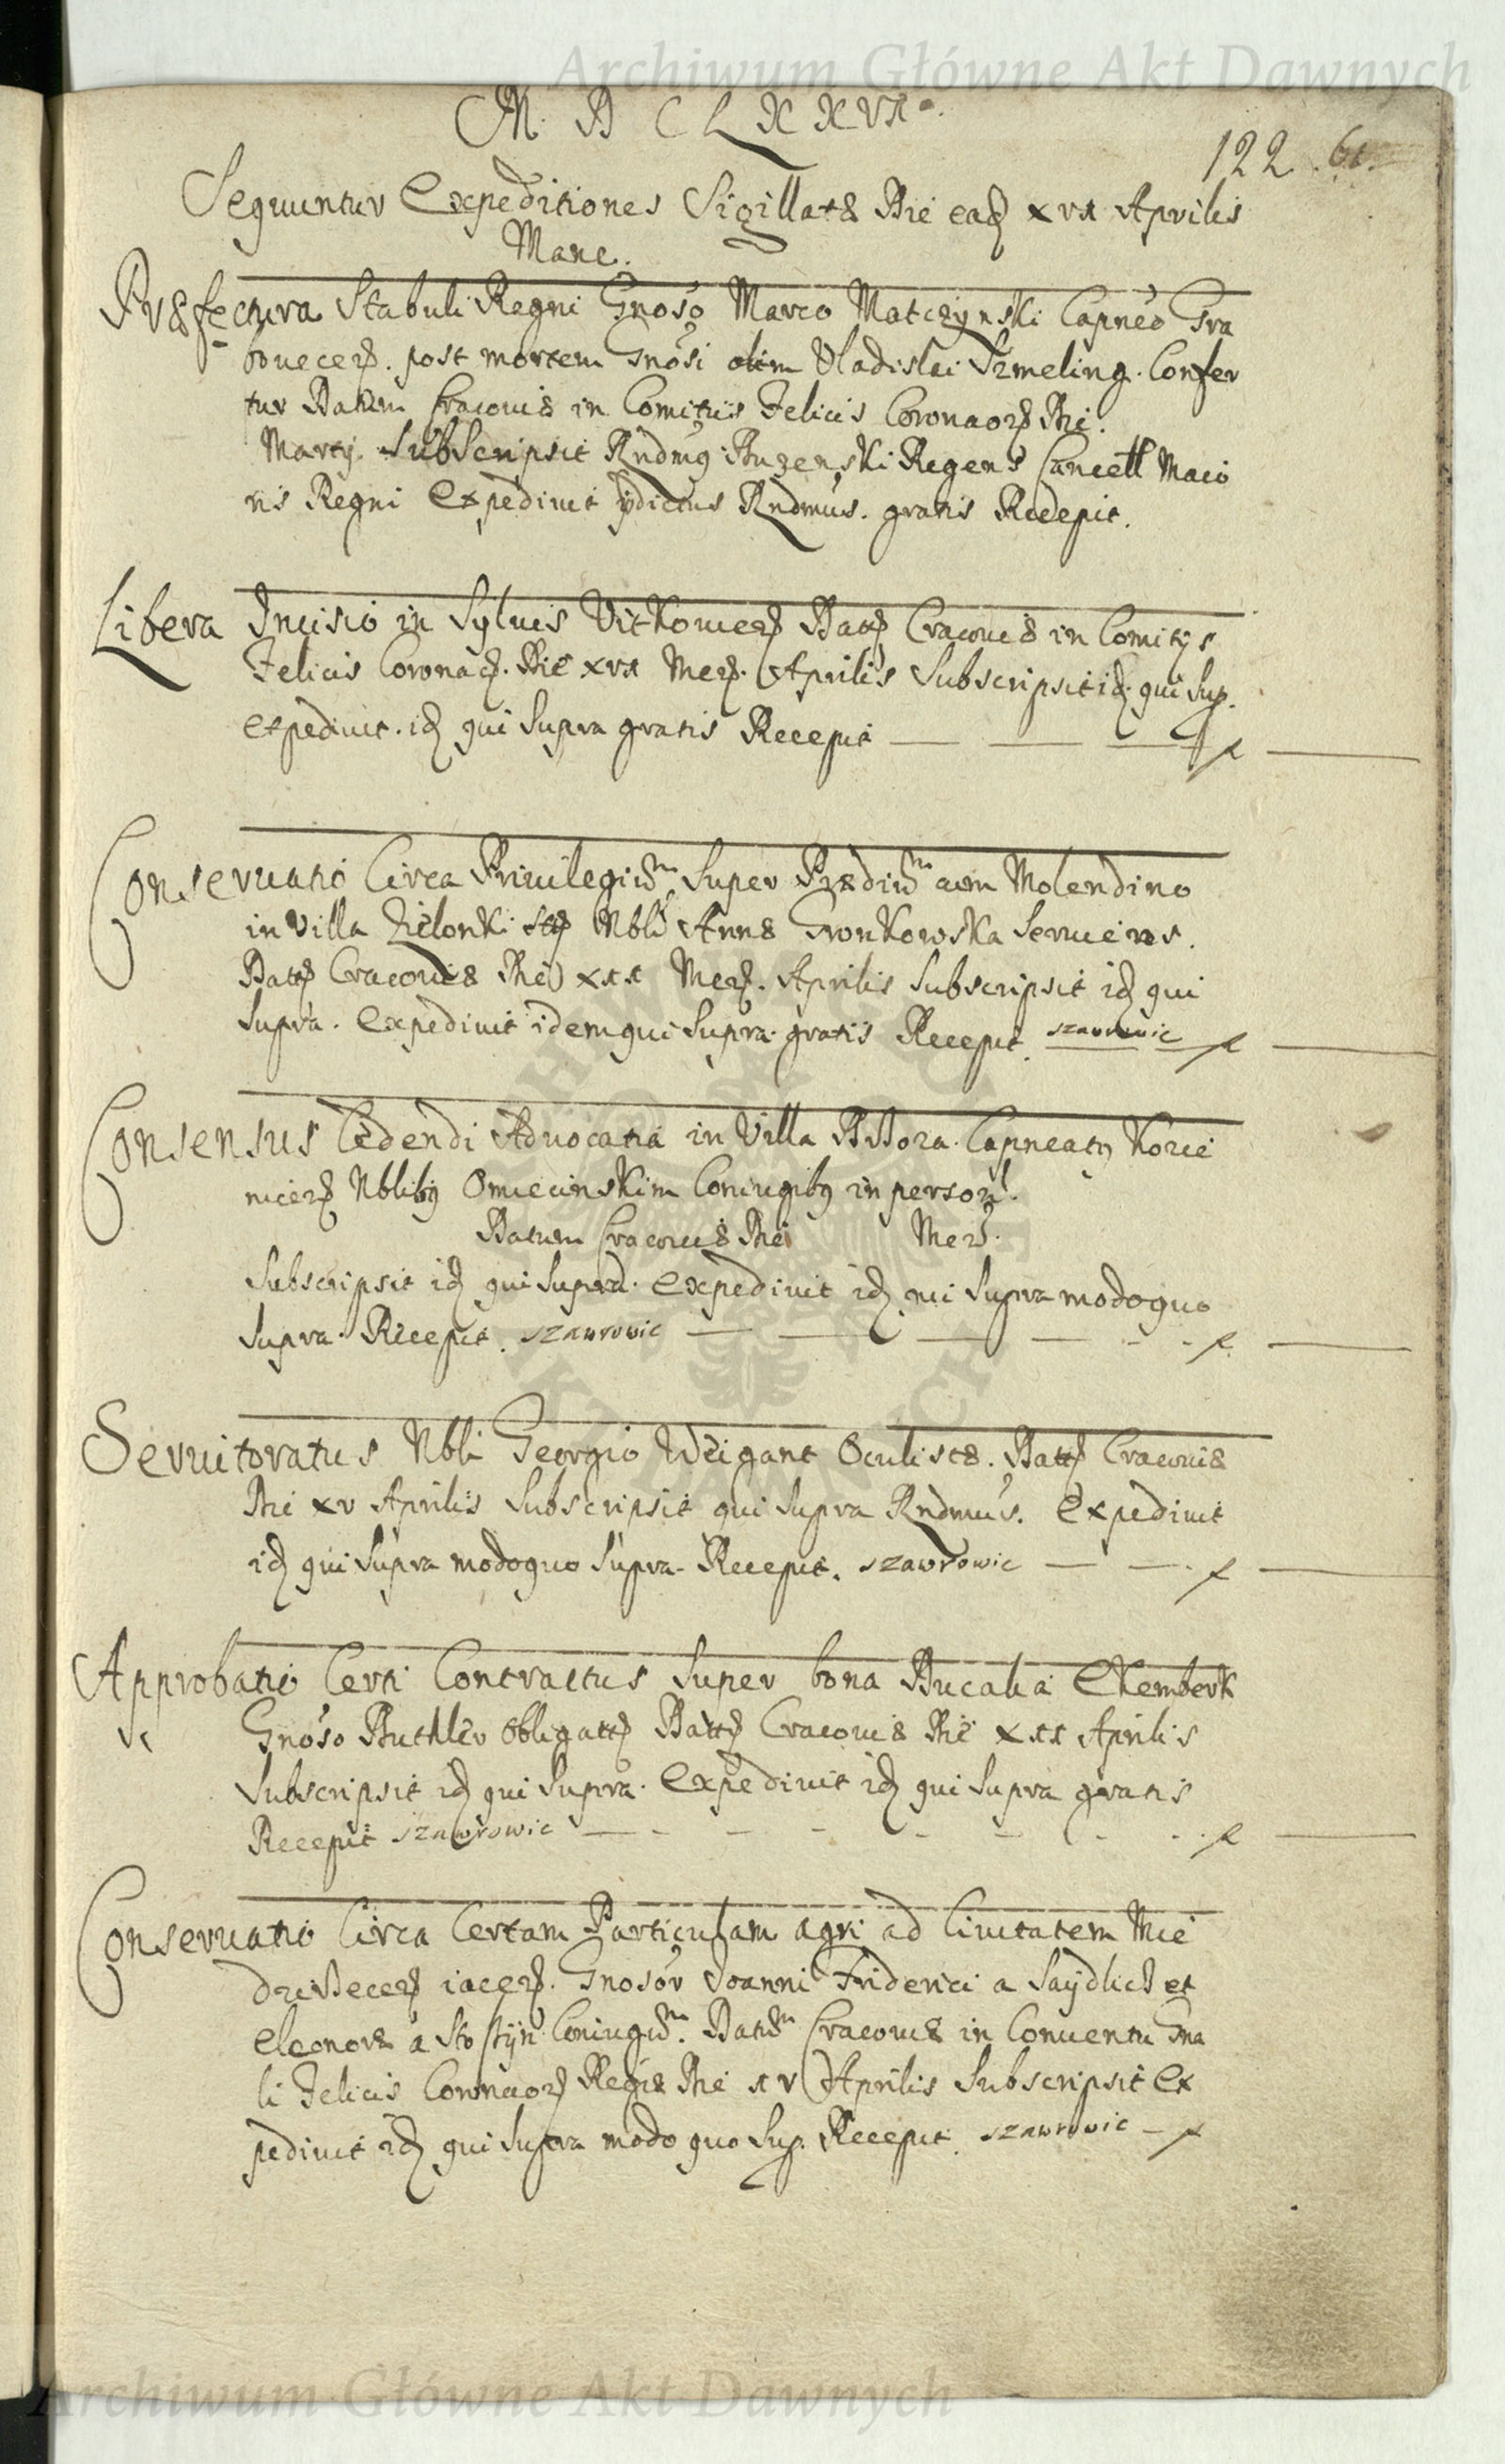 Archiwum Główne Akt Dawnych
M. D C L X X VI°.
122. 61.
Sequuntur Expeditiones Sigillatæ Die eađ XVI Aprilis
Mane.
Præfectura Stabuli Regni Gnoso Marco Matczynski Capneo Gra
bouecen. post mortem Gnosi olim Vladislai Szmeling. Confer
tur Datum Cracouiæ in Comitiis Felicis Coronaon Die.
Martij. SubScripsit Rndmq Buzenski Regens Cancell Maio
ris Regni Expediuit pdictus Rndmus. gratis Recepit.
Libera Incisio in Syluis Vitkouien Datt Cracouiæ in Comitijs
Felicis Coronaon. Die XVI Men. Aprilis Subscripsit id. qui sup.
expediuit. id qui Supra gratis Recepit
Conseruatio Circa Priuilegium Super Prædium cum Molendino
in Villa Zielonki Nbli Annæ Gronkowska Seruiens.
Datt Cracouiæ Die XII Men. Aprilis Subscripsit id qui
supra. Expediuit idem qui Supra. gratis Recepit. szawrowic
Consensus Cedendi Aduocatia in Villa Capneatq Kozie
nicen Nblibq Omiecinskim Coniugibq in person.
Datum Cracouiæ Die Men.
Subscripsit id qui supra. Expediuit id qui Supra modoquo
Supra. Recepit. szawrowic
Seruitoratus Nbli Georgio Weigant Oculistæ. Datt Cracouiæ
Die XV Aprilis Subscripsit qui supra Rndmus. Expediuit
id qui supra modoquo Supra. Recepit. szawrowic
Approbatio Certi Contractus Super bona Ducalia Ekemberk
Gnoso Buthler Obligatt Datt Cracouiæ Die XII Aprilis
Subscripsit id qui supra. Expediuit id qui supra gratis
Recepit szawrowic
Conseruatio Circa Certam Particulam agri ad Ciuitatem Mie
iacen. Gnosor Joanni Friderici a Saydlicz et
Eleonoræ a Coniugum. Datum Cracouiæ in Conuentu Gna
li Felicis Coronaon Regiæ Die XV Aprilis Subscripsit Ex
pediuit id qui supra modo quo Sup. Recepit. szawrowic
Archiwum Główne Akt Dawnych